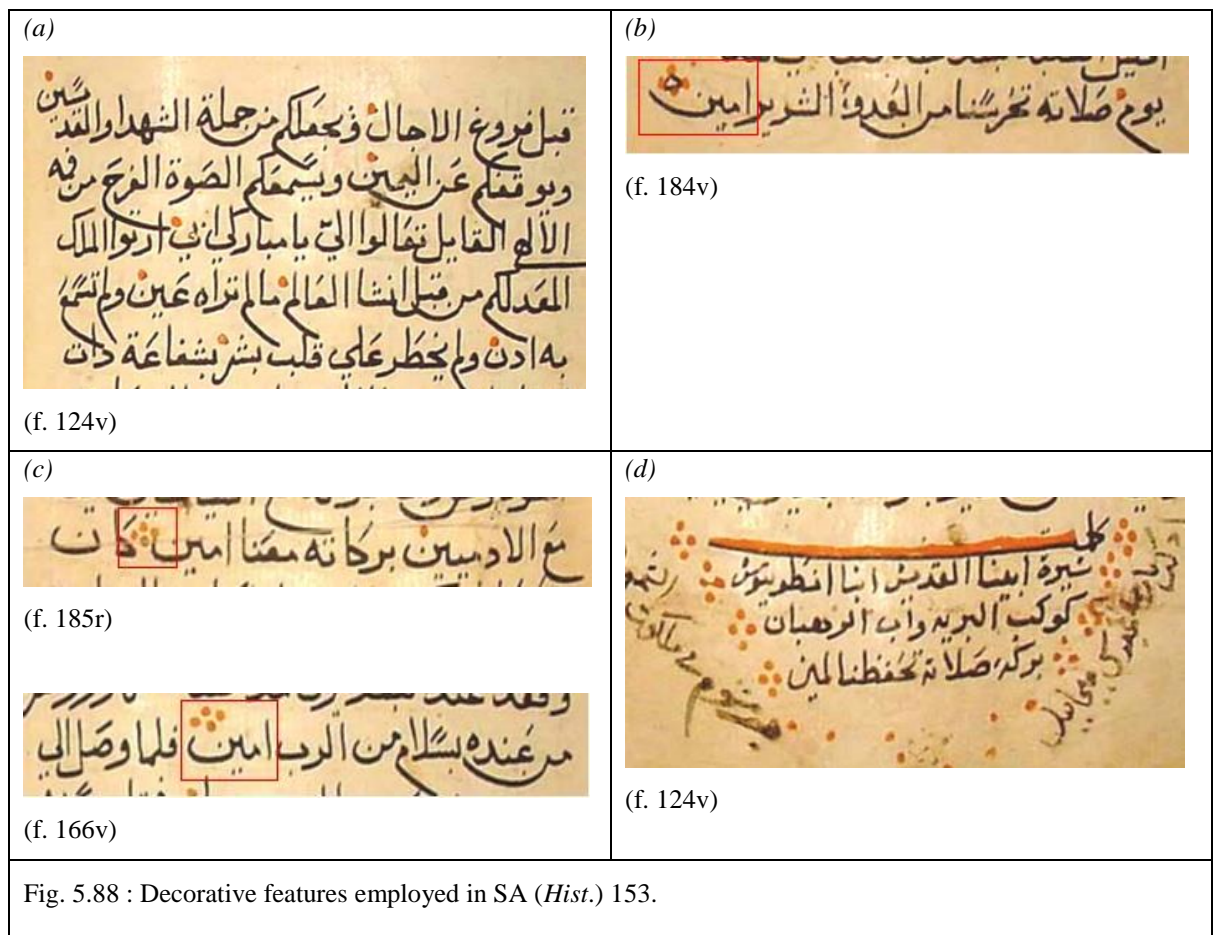 (a)
قبل فروغ الاجال ويجعلكم من جملة الشهدا والقديسين
ويوقفكم عن اليمين ويسمعكم الصوة الفرح من فيه
الالهي القايل تعالوا اليّ يا مباركي ابي ارثوا الملك
المعد لكم من قبل انشا العالم ما لم تراه عين ولم تسمع
به ادن ولم يخطر علي قلب بشر بشفاعة دات
(f. 124v)
(b)
يوم صلاته تحرسنا من العدوا الشرير امين
(f. 184v)
(c)
مع الادميين بركاته معنا امين كان
(f. 185r)
من عنده بسلام من الرب امين فلما وصل الي
(f. 166v)
(d)
كملت
سيرة ابينا القديس انبا انطونيوس
كوكب البريه واب الرهبان
بركة صلاته تحفظنا امين
(f. 124v)
Fig. 5.88 : Decorative features employed in SA (Hist.) 153.